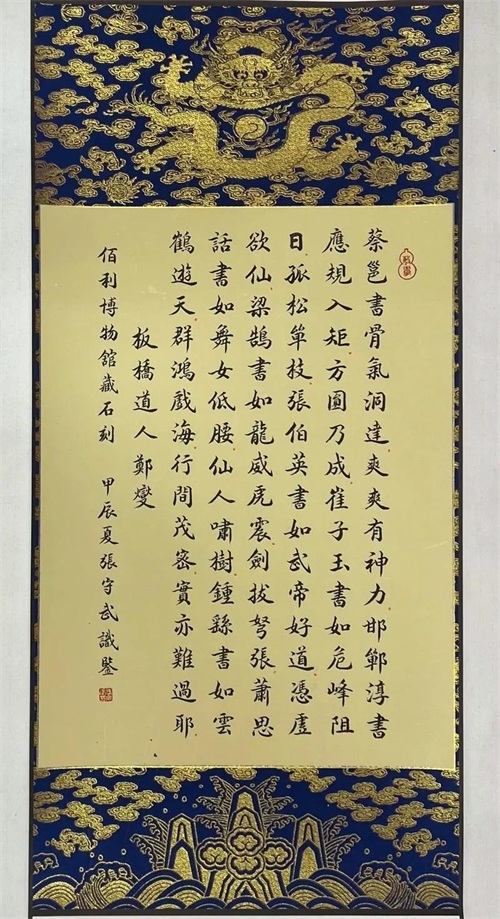 蔡邕書骨氣洞達爽爽有神力邯鄲淳書
應規入矩方圓乃成崔子玉書如危峰阻
日孤松單枝張伯英書如武帝好道憑虛
欲仙梁鵠書如龍威虎震劍拔弩張蕭思
話書如舞女低腰仙人嘯樹鍾繇書如雲
鶴遊天群鴻戲海行間茂密實亦難過耶
板橋道人鄭燮
佰利博物館藏石刻 甲辰夏張守武識鑒